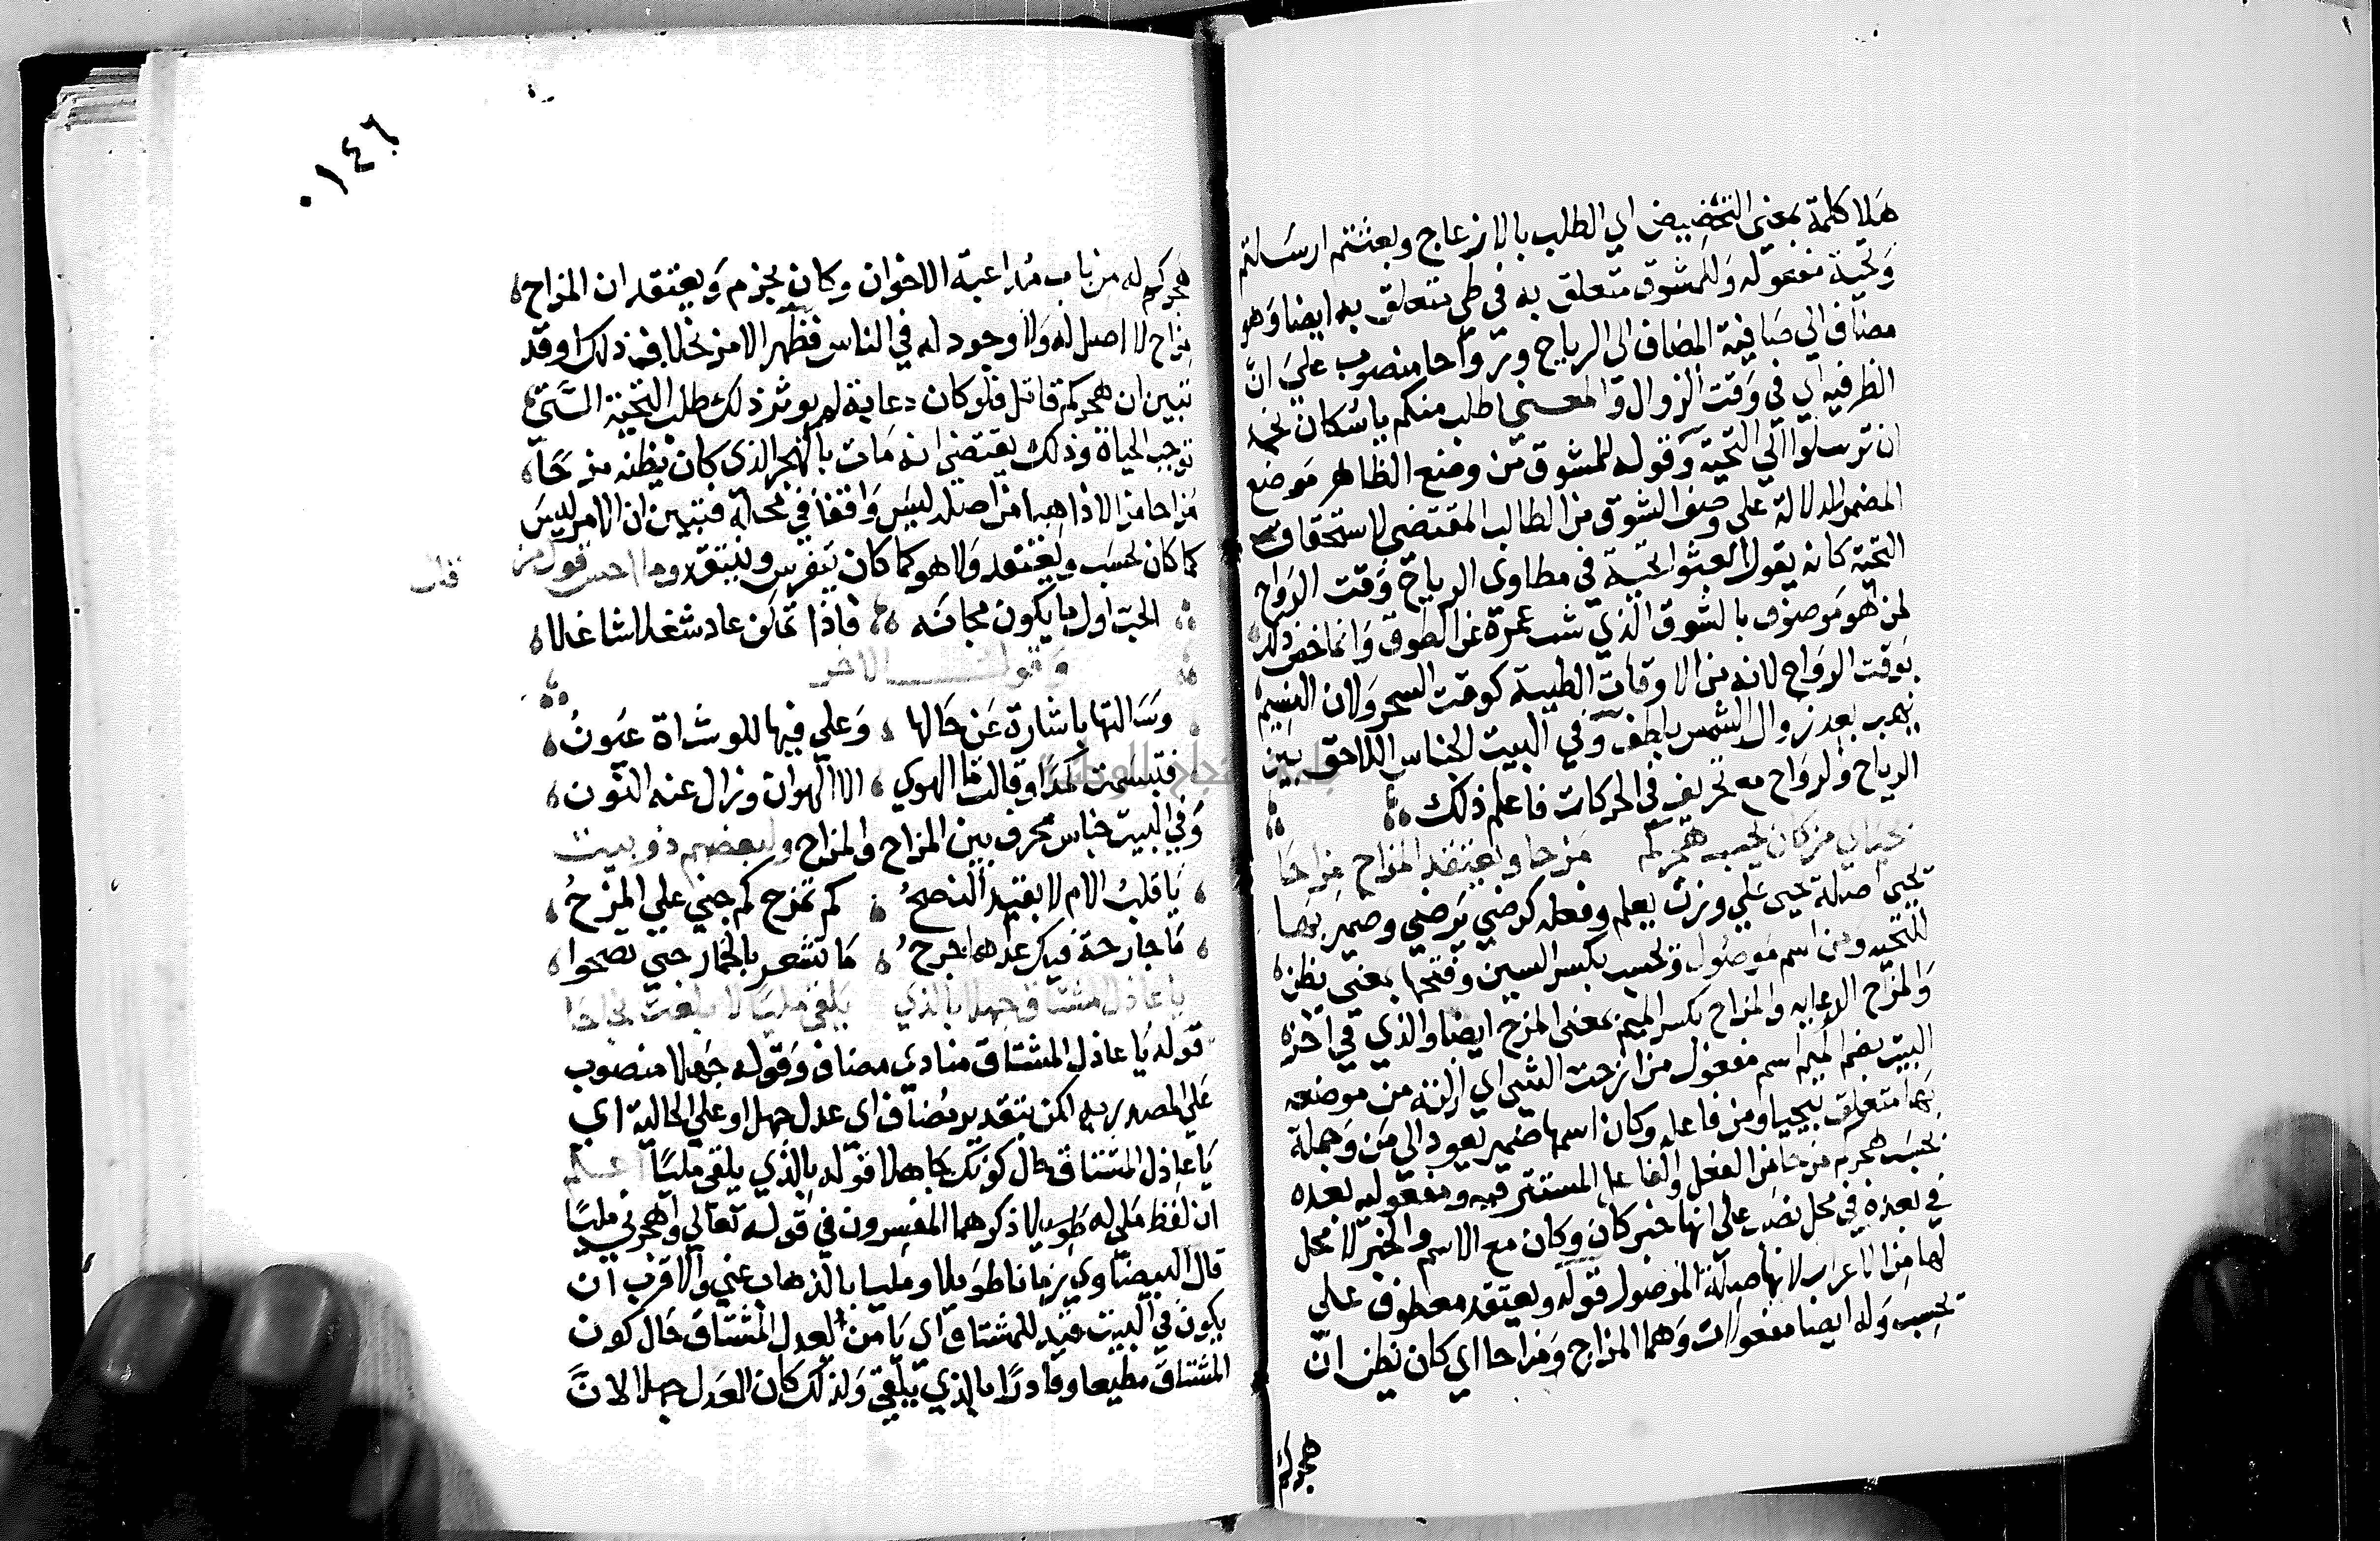 هلا كلمة بمعنى التحضيض اي الطلب بالازعاج وبعثتم ارسلتم
وتحية مفعوله وللمشوق متعلق به في طي متعلق به ايضا وهو
مضاف الي صافية المضاف الى الرياح وترواحا منصوب علي ان
الظرفيه اي في وقت الزوال والمعنى اطلب منكم يا سكان نجد
ان ترسلوا الي التحية وقوله للمشوق من وضع الظاهر موضع
المضمر للدلالة على وصف الشوق من الطالب المقتضي لاستحقاق
التحية كانه يقول ابعثوا تحية في مطاوي الرياح وقت الرواح
لمن هو موصوف بالشوق الذي شب عمره عن الطوق وانما خص ذلك
بوقت الرواح لانه من الاوقات الطيبة كوقت السحر ولان النسيم
يهب بعد زوال الشمس بلطف وفي البيت الجناس اللاحق بين
الرياح والرواح مع تحريف في الحركات فاعلم ذلك
يحيا بها من كان يحسب هجركم مزحا ويعتقد المزاح مزاحا
يحيى اصله يحيى علي وزن يعلم وفعله كرضي يرضي وضمير بها
للتحيه ومن اسم موصول ويحسب بكسر السين وفتحها بمعنى يظن
والمزاح الدعابه والمزاح بكسر الميم بمعنى المزح ايضا والذي في اخر
البيت بضم الميم اسم مفعول من ازحت الشي اي ازلته من موضعه
بها متعلق بيحيا ومن فاعله وكان اسمها ضمير يعود الي من وجملة
يحسب هجركم مزحا من الفعل والفاعل المستتر فيه ومفعوليه بعده
في بعده في محل نصب على انها خبر كان وكان مع الاسم والخبر لا محل
لها من الاعراب لانها صلة الموصول قوله ويعتقد معطوف علي
يحسب وله ايضا مفعولات وهما المزاح ومزاحا اي كان يظن ان
هجركم
١٤٦
هجركم له من باب مداعبة الاخوان وكان يجزم ويعتقد ان المزاح
مزاح لا اصل له ولا وجود له في الناس فظهر الامر بخلاف ذلك وقد
تبين ان هجركم قاتل فلو كان دعابة لم يوثر ذلك طلب التحية التي
توجب الحياة وذلك يقتضي انه مات بالهجر الذي كان يظنه مزحا
مزاحا من الاذاهبا من اصله ليس واقفا في محله فتبين ان الامر ليس
كما كان يحسب ويعتقد ولا هو كما كان يتفرس وينتقد وما احسن قول من قال
الحب اول ما يكون مجانه فاذا تمكن عاد شغلا شاغلا
وقول الاخر
وسالتها باشارة عن حالها وعلي فيها للوشاة عيون
فتبسمت كمدا وقالت ما الهوي الا الهوان وزال عنه النون
وفي البيت جناس محرف بين المزاح والمزاح ولبعضهم ذو بيت
يا قلب الام لا يفيد النصح كم تمزح كم جني علي المزح
ما جارحة فيك عداها جرح ما تشعر بالخمار حتي تصحوا
يا عاذل المشتاق جهلا بالذي يلقى مليا لا بلغت نجاحا
قوله يا عاذل المشتاق منادي مضاف وقوله جهلا منصوب
علي المصدريه لكن بتقدير مضاف اي عدل جهل او علي الحالية اي
يا عاذل المشتاق حال كونك جاهلا قوله بالذي يلقى مليا اعلم
ان لفظ ملي له طويلا ذكرهما المفسرون في قوله تعالي واهجرني مليا
قال البيضاوي زمانا طويلا ومليا بالذهاب عني والاقرب ان
يكون في البيت قيد للمشتاق اي يا من لعدل المشتاق حال كون
المشتاق مطيعا وقادرا بالذي يلقي ولذلك كان العدل جهلا لان